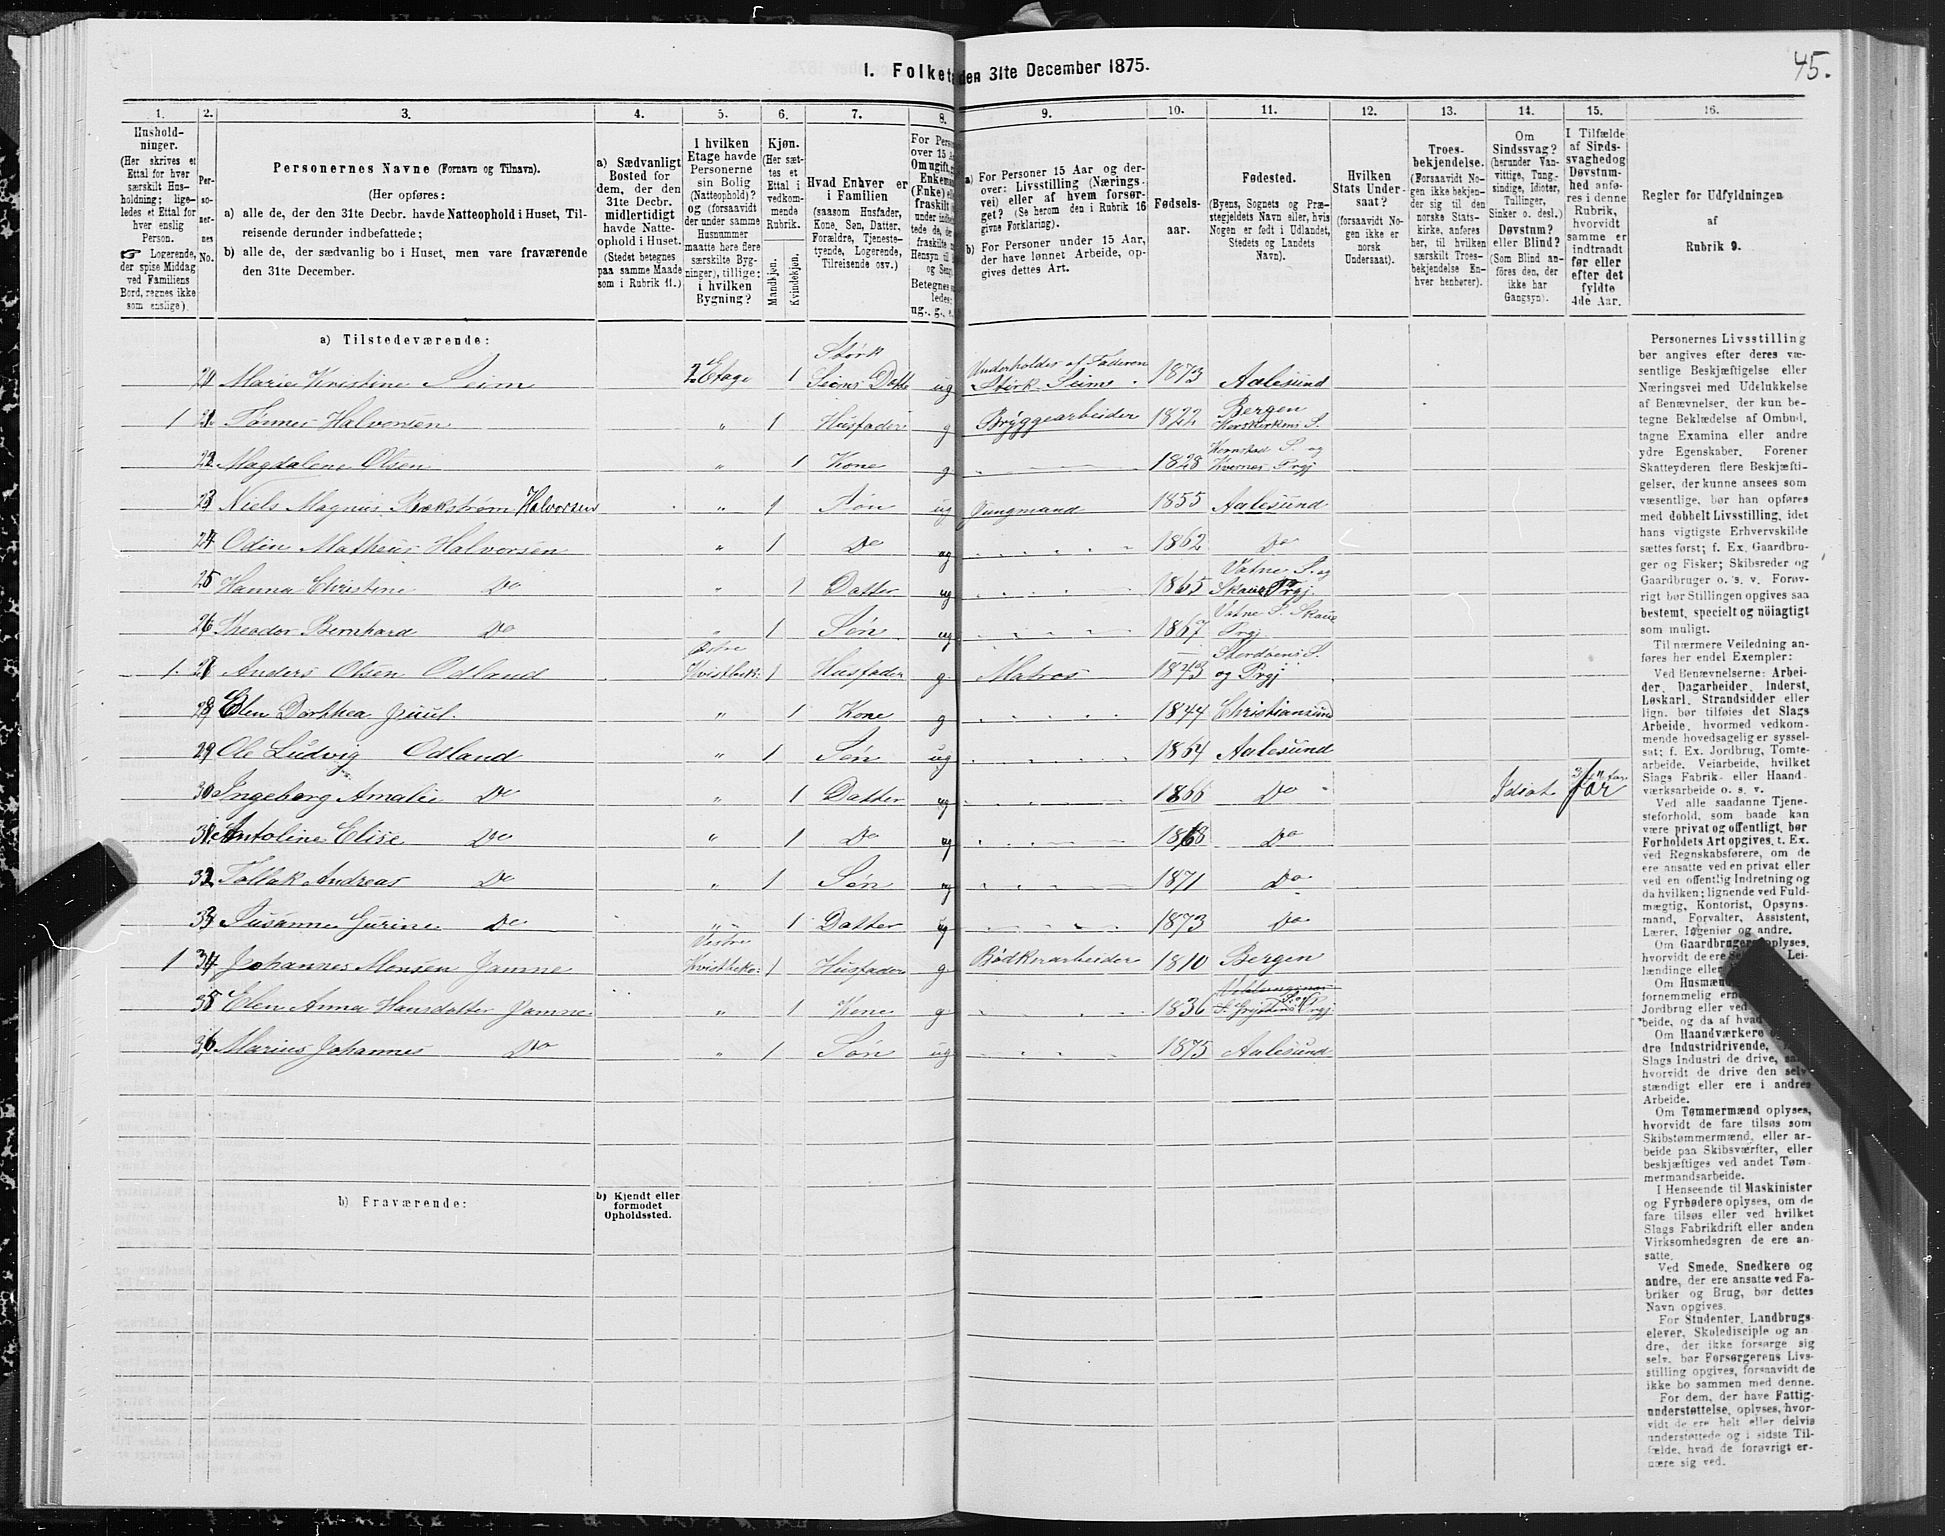 45.
1. Folket den 31te December 1875.
1. 2. 3. 4. 5. 6. 7. 8. 9. 10. 11. 12. 13. 14. 15. 16.
Hushold-
ninger.
(Her skrives et
Ettal for hver
særskilt Hus-
holdning; lige-
ledes et Ettal for
hver enslig
Person.
☞ Logerende,
der spise Middag
ved Familiens
Bord, regnes ikke
som enslige).
Per-
so-
ner-
nes
No.
Personernes Navne (Fornavn og Tilnavn).
(Her opføres:
a) alle de, der den 31te Decbr. havde Natteophold i Huset, Til-
reisende derunder indbefattede;
b) alle de, der sædvanlig bo i Huset, men vare fraværende
den 31te December.
a) Sædvanligt
Bosted for
dem, der den
31te Decbr.
midlertidigt
havde Natte-
ophold i Huset.
(Stedet betegnes
paa samme Maade
som i Rubrik 11.)
I hvilken
Etage havde
Personerne
sin Bolig
(Natteophold)?
og (forsaavidt
der under samme
Husnummer
maatte høre flere
særskilte Byg-
ninger), tillige:
i hvilken
Bygning?
Kjøn.
(Her sæt-
tes et
Ettal i
vedkom-
mende
Rubrik.
Mandkjøn.
Kvindekjøn.
Hvad Enhver er
i Familien
(saasom Husfader,
Kone, Søn, Datter,
Forældre, Tjeneste-
tyende, Logerende,
Tilreisende osv.)
For Pers
over 15 A
Om ugift,
Enkem
(Enke)
fraskilt
ug., g., e.
a) For Personer 15 Aar og der-
over: Livsstilling (Nærings-
vei) eller af hvem forsør-
get? (Se herom den i Rubrik 16
givne Forklaring).
b) For Personer under 15 Aar,
der have lønnet Arbeide, op-
gives dettes Art.
Fødsels-
aar.
Fødested.
(Byens, Sognets og Præ-
stegjeldets Navn eller, hvis
Nogen er født i Udlandet,
Stedets og Landets
Navn).
Hvilken
Stats Under-
saat?
(forsaavidt No-
gen ikke er
norsk
Undersaat).
Troes-
bekjendelse.
(Forsaavidt No-
gen ikke bekjen-
der sig til den
norske Stats-
kirke, anføres
her, til hvilken
særskilt Troes-
bekjendelse En-
hver henhører).
Om
Sindssvag?
(herunder Van-
vittige, Tung-
sindige, Idioter,
Tullinger,
Sinker o. desl.)
Døvstum?
eller Blind?
(Som Blind an-
føres den, der
ikke har
Gangsyn).
I Tilfælde
af Sinds-
svaghed og
Døvstum-
hed anfø-
res i denne
Rubrik,
hvorvidt
samme er
indtraadt
før eller
efter det
fyldte
4de Aar.
Regler for Udfyldningen
af
Rubrik 9.
a) Tilstedeværende:
20 Marie Kristine Seim 2. Etage 1 Størk Seims Datte ug Underholdes af Faderen Størk Seims. 1873 Aalesund
1 21 Tønnes Halvorsen " 1 Husfader g Bryggearbeider 1822 Bergen Korskirkens S.
22 Magdalene Olsen 1 Kone g 1828 S. og Kvernes Prgj
23 Niels Magnus Halvorsen " 1 Søn ug Jungmand 1855 Aalesund
24 Odin Matheus Halvorsen " 1 Do ug 1862 Do
25 Hanna Christine Do " 1 Datter ug 1865 Vatne S. og Skaue Prgj.
26 Theodor Bernhard Do " 1 Søn ug 1867 Vatne S. Skaue Prgj
1. 27 Anders Olsen Odland Østre Kvistbek: 1 Husfader g. Matros 1843 S. og Prgj
28 Elen Dorthea Juul. " 1 Kone g 1844 Christiansund
29 Ole Ludvig Odland " 1 Søn ug 1864 Aalesund
30 Ingeborg Amalie Do " 1 Datter ug 1866 Do Idiot før
31 Antoline Elise Do " 1 Do ug 1868 Do
32 Tollak Andreas Do " 1 Søn ug 1871 Do
33 Susanne Gurine Do " 1 Datter ug 1873 Do
1 34 Johannes Monsen Jamne Vestre Kvistbek: 1 Husfader g. Bødkerarbeider 1810 Bergen
35 Elen Anna Hansdatter Jamne " 1 Kone g. 1836 S. og Prgj
36 Marius Johannes Do " 1 Søn ug 1875 Aalesund
b) Fraværende:
b) Kjendt eller
formodet
Opholdssted.
Personernes Livsstilling
bør angives efter deres væ-
sentlige Beskjæftigelse eller
Næringsvei med Udelukkelse
af Benævnelser, der kun be-
tegne Beklædelse af Ombud,
tagne Examina eller andre
ydre Egenskaber. Forener
Skatteyderen flere Beskjæfti-
gelser, der kunne ansees som
væsentlige, bør han opføres
med dobbelt Livsstilling, idet
hans vigtigste Erhvervskilde
sættes først; f. Ex. Gaardbru-
ger og Fisker; Skibsreder og
Gaardbruger o. s. v. Forøv-
rigt bør Stillingen opgives saa
bestemt, specielt og nöiagtigt
som muligt.
Til nærmere Veiledning an-
føres her endel Exempler:
Ved Benævnelserne: Arbei-
der, Dagarbeider, Inderst,
Løskarl, Strandsidder eller
lign. bør tilføies det Slags
Arbeide, hvormed vedkom-
mende hovedsagelig er syssel-
sat; f. Ex. Jordbrug, Tomte-
arbeide, Veiarbeide, hvilket
Slags Fabrik- eller Haand-
værksarbeide o. s. v.
Ved alle saadanne Tjene-
steforhold, som baade kan
være privat og offentligt, bør
Forholdets Art opgives, t. Ex.
ved Regnskabsførere, om de
ere ansatte ved en privat eller
ved en offentlig Indretning og
da hvilken; lignende ved Fuld-
mægtig, Kontorist, Opsyns-
mand, Forvalter, Assistent,
Lærer, Ingeniør og andre.
Om Gaardbrugere oplyses,
hvorvidt de ere Lei-
lændinge eller
Om Husmænd
fornemmelig
Jordbrug eller ved
beide, og da af hvad
Om Haandværkere o
dre Industridrivende,
Slags Industri de drive, sam
hvorvidt de drive den selv-
stændigt eller ere i andres
Arbeide.
Om Tømmermænd oplyses,
hvorvidt de fare tilsøs som
Skibstømmermænd, eller ar-
beide paa Skibsværfter, eller
beskjæftiges ved andet Tøm-
mermandsarbeide.
I Henseende til Maskinister
og Fyrbødere oplyses, om de
fare tilsøs eller ved hvilket
Slags Fabrikdrift eller anden
Virksomhedsgren de ere an-
satte.
Ved Smede, Snedkere og
andre, der ere ansatte ved Fa-
briker og Brug, bør dettes
Navn opgives.
For Studenter, Landbrugs-
elever, Skoledisciple og an-
dre, der ikke forsørge sig
selv, bør Forsørgerens Livs-
stilling opgives, forsaavidt de
ikke bo sammen med denne.
For dem, der have Fattig-
understøttelse, oplyses, hvor-
vidt de ere helt eller delvis
understøttede og i sidste Til-
fælde, hvad de forøvrigt er-
nære sig ved.